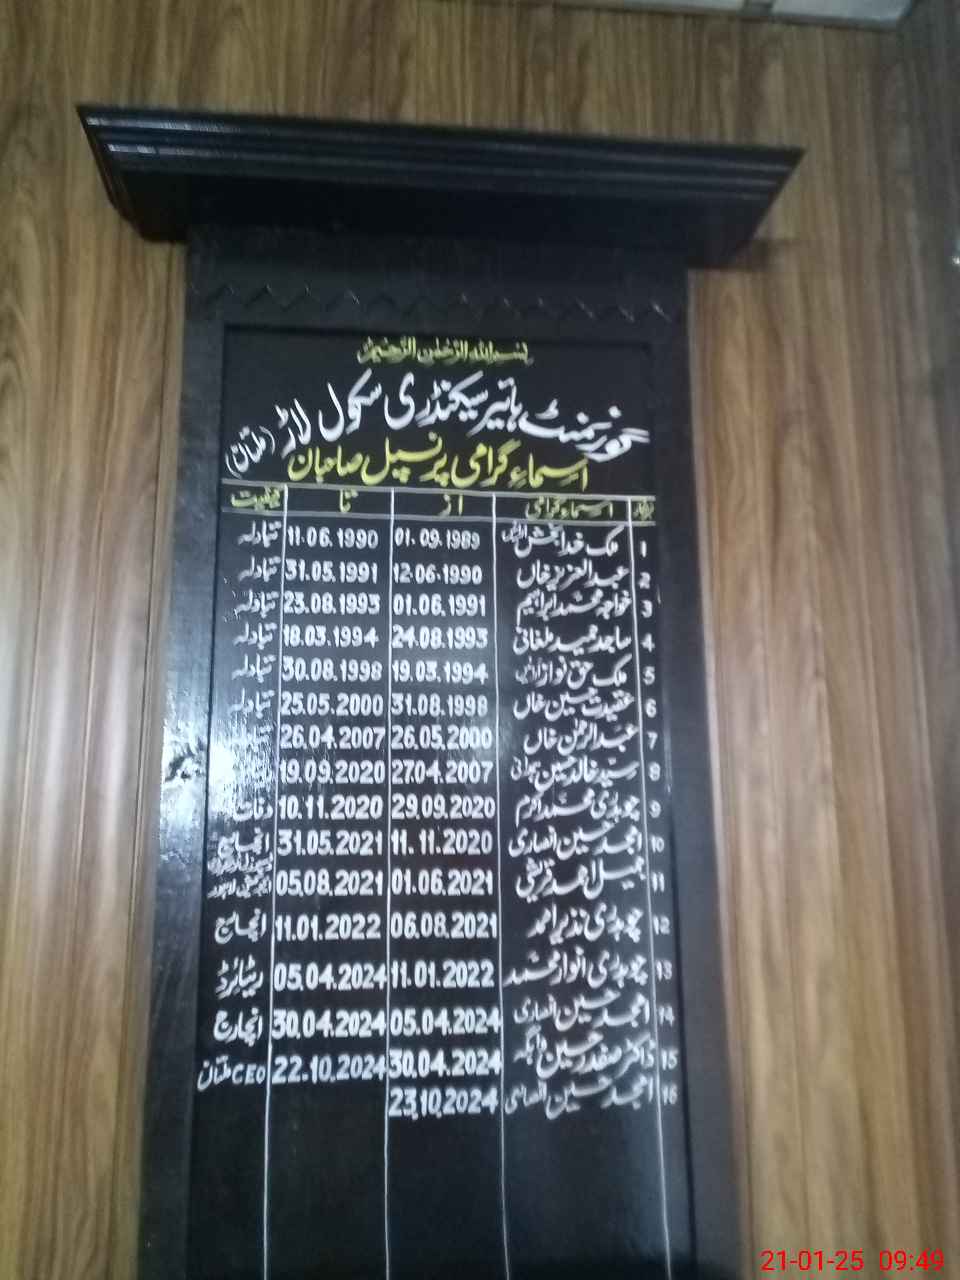 بسم اللہ الرحمٰن الرحیم
گورنمنٹ ہائیر سیکنڈری سکول لاڑ (ملتان)
اسماءِ گرامی پرنسپل صاحبان
اسماء گرامی از تا
1 ملک خدا بخش 01.09.1989 11.06.1990 تبادلہ
2 عبدالعزیز خاں 12.06.1990 31.05.1991 تبادلہ
3 خواجہ محمد ابراہیم 01.06.1991 23.08.1993 تبادلہ
4 ساجد حمید ملغانی 24.08.1993 18.03.1994 تبادلہ
5 ملک حق نواز 19.03.1994 30.08.1998 تبادلہ
6 عقیدت حسین خاں 31.08.1998 25.05.2000 تبادلہ
7 عبدالرحمٰن خاں 26.05.2000 26.04.2007 تبادلہ
8 سید خالد حسین 27.04.2007 19.09.2020
9 چوہدری محمد اکرم 29.09.2020 10.11.2020 وفات
10 امجد حسین انصاری 11.11.2020 31.05.2021 انچارج
11 جمیل احمد قریشی 01.06.2021 05.08.2021
12 چوہدری نذیر احمد 06.08.2021 11.01.2022 انچارج
13 چوہدری انوار محمد 11.01.2022 05.04.2024 ریٹائرڈ
14 امجد حسین انصاری 05.04.2024 30.04.2024 انچارج
15 ڈاکٹر صفدر حسین واہگہ 30.04.2024 22.10.2024 CEO ملتان
16 امجد حسین انصاری 23.10.2024
21-01-25 09:49